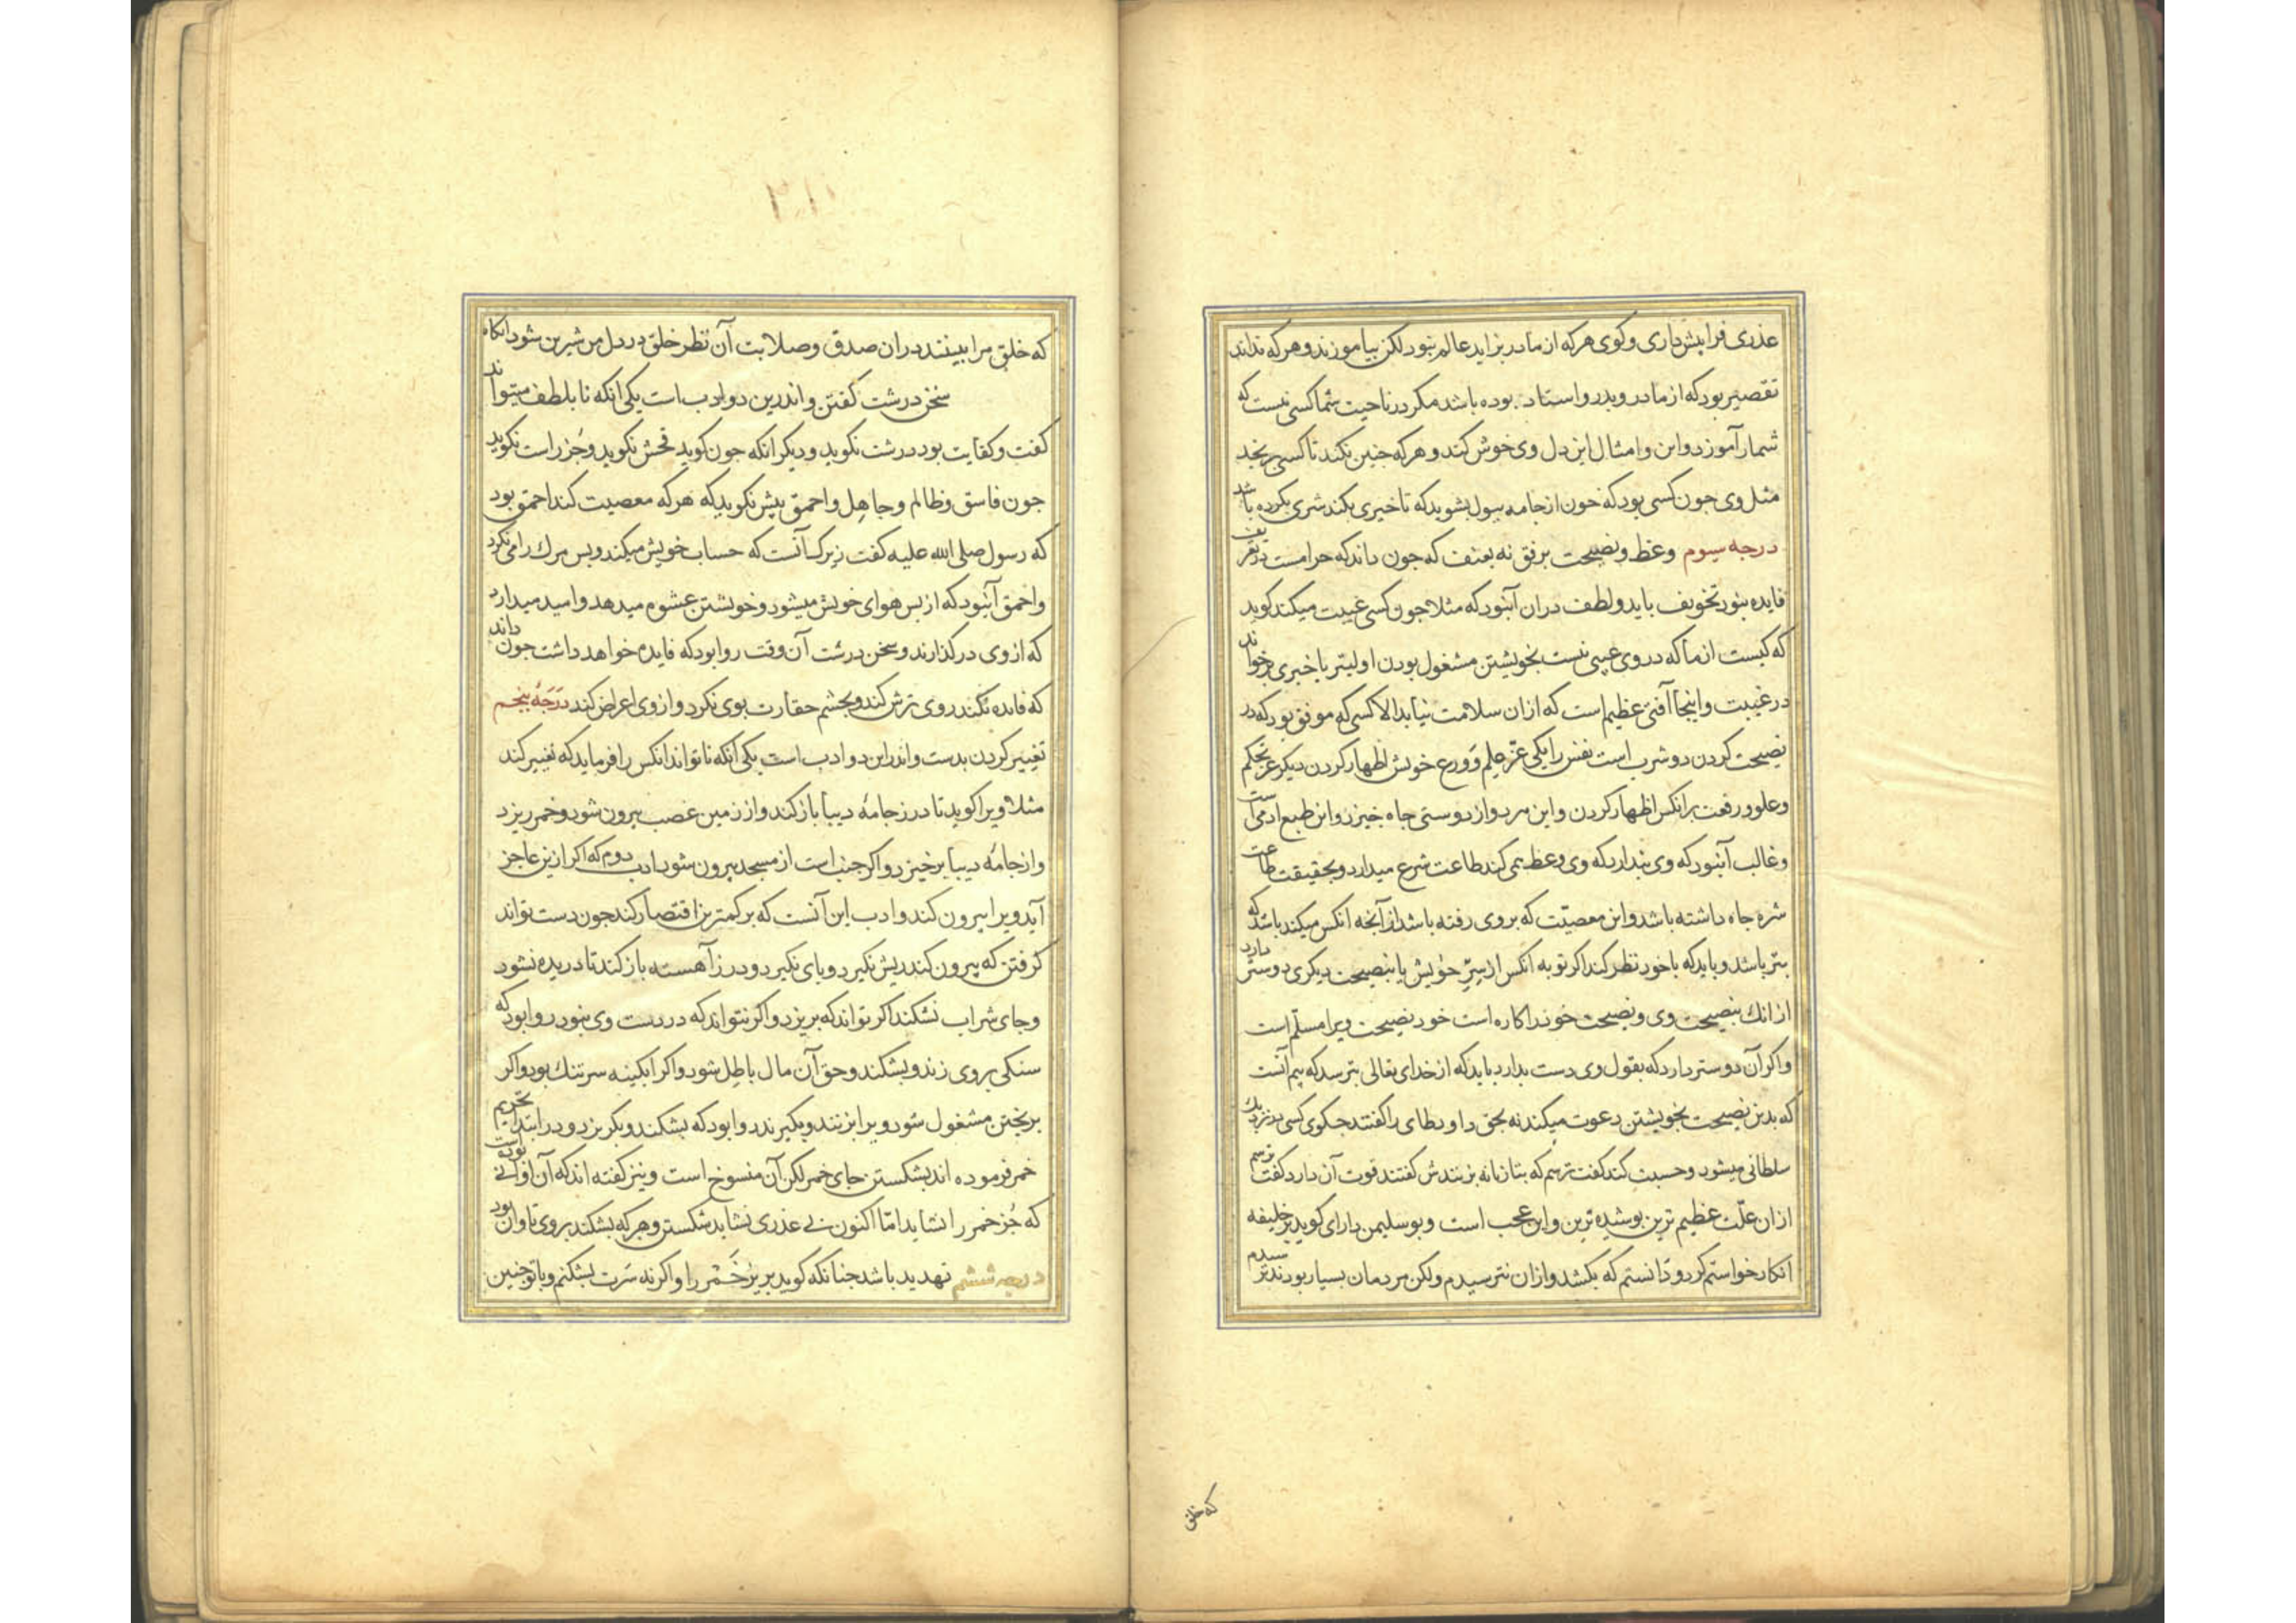 عذری فرا پیش داری و کوی هرکه از مادر بزاید عالم نبود لکن بیاموزند و هرکه نداند
تقصیر بود که از مادر و پدر و استاد بوده باشد مکر در ناحیت شما کسی نیست که
شما را آموزد و این و امثال این دل وی خوش کند و هرکه جنین نکند تا کسی برنجد
مثل وی جون کسی بود که خون از جامه ببول بشوید که تا خیری بکند شری بکرده باشد
درجه سیوم وعظ و نصیحت برفق نه بعنف که جون داند که حرامست در تعریف
فایده نبود تخویف باید و لطف دران آنبود که مثلا جون کسی غیبت میکند کوید
که کیست از ما که در وی عیبی نیست بخویشتن مشغول بودن اولیتر یا خبری برخواند
در غیبت و اینجا آفتی عظیم است که ازان سلامت نیابد الا کسی که موفق بود که در
نصیحت کردن دو شرب است نفس را یکی عز علم و ورع خویش اظهار کردن دیکر عز تحکم
و علو و رفعت برانکس اظهار کردن و این هر دو از دوستی جاه خیزد و این طبع ادمی است
و غالب آنبود که وی پندارد که وی وعظ همی کند طاعت شرع میدارد و بحقیقت طاعت
شره جاه داشته باشد و این معصیت که بر وی رفته باشد از آنجه انکس میکند باشد که
بتر باشد و باید که با خود نظر کند اکر توبه انکس از سر خویش یا بنصیحت دیکری دوستر دارد
ازانک بنصیحت وی و نصیحت خود را کاره است خود نصیحت ویرا مسلم است
و اکر آن دوستر دارد که بقول وی دست بدارد باید که از خدای تعالی بترسد که بیم آنست
که بدین نصیحت بخویشتن دعوت میکند نه بحق داود طای را کفتند جکوی کسی در نزدیک
سلطانی میشود و حسبت کند کفت ترسم که بتازیانه بزنندش کفتند قوت آن دارد کفت ترسم
ازان علت عظیم ترین پوشیده ترین و این عجب است و بو سلیمن دارای کوید بر خلیفه
انکار خواستم کرد و دانستم که بکشد و ازان نترسیدم ولکن مردمان بسیار بودند ترسیدم
که خلق
که خلق مرا ببینند دران صدق و صلابت آن نظر خلق در دل من شیرین شود انکاه
سخن درشت کفتن و اندرین دو ادب است یکی انکه تا بلطف میتواند
کفت و کفایت بود درشت نکوید و دیکر انکه جون کوید فحش نکوید و جز راست نکوید
جون فاسق و ظالم و جاهل و احمق بیش نکوید که هرکه معصیت کند احمق بود
که رسول صلی الله علیه کفت زیرک آنست که حساب خویش میکند و پس مرک را می نکرد
و احمق آنبود که از پس هوای خویش میشود و خویشتن عشوه میدهد و امید میدارد
که از وی در کذارند و سخن درشت آن وقت روا بود که فایده خواهد داشت جون داند
که فایده نکند روی ترش کند و بجشم حقارت بوی نکرد و از وی اعراض کند درجه پنجم
تغییر کردن بدست و اندر این دو ادب است یکی انکه تا تواند انکس را فرماید که تغییر کند
مثلا ویرا کوید تا درز جامه دیبا باز کند و از زمین غصب بیرون شود و خمر ریزد
و از جامه دیبا برخیزد و اکر جنب است از مسجد بیرون شود ادب دوم که اکر ازین عاجز
آید ویرا بیرون کند و ادب این آنست که بر کمترین اقتصار کند جون دست تواند
کرفتن که بیرون کند ریش نکیرد و پای نکیرد و درز آهسته باز کند تا دریده نشود
و جای شراب نشکند اکر تواند که بریزد و اکر نتواند که در دست وی نبود روا بود که
سنکی بر وی زند و بشکند و حق آن مال باطل شود و اکر ابکینه سر تنک بود و اکر
بریختن مشغول شود ویرا بزنند و بکیرند روا بود که بشکند و بکریزد و در ابتدا تحریم
خمر فرموده اند بشکستن جای خمر لکن آن منسوخ است و نیز کفته اند که آن اوانی بوده است
که جز خمر را نشاید اما اکنون بی عذری نشاید شکستن و هرکه بشکند بر وی تاوان بود
درجه ششم تهدید باشد جنانکه کوید بریز خمر را و اکر نه سرت بشکنم و با تو جنین